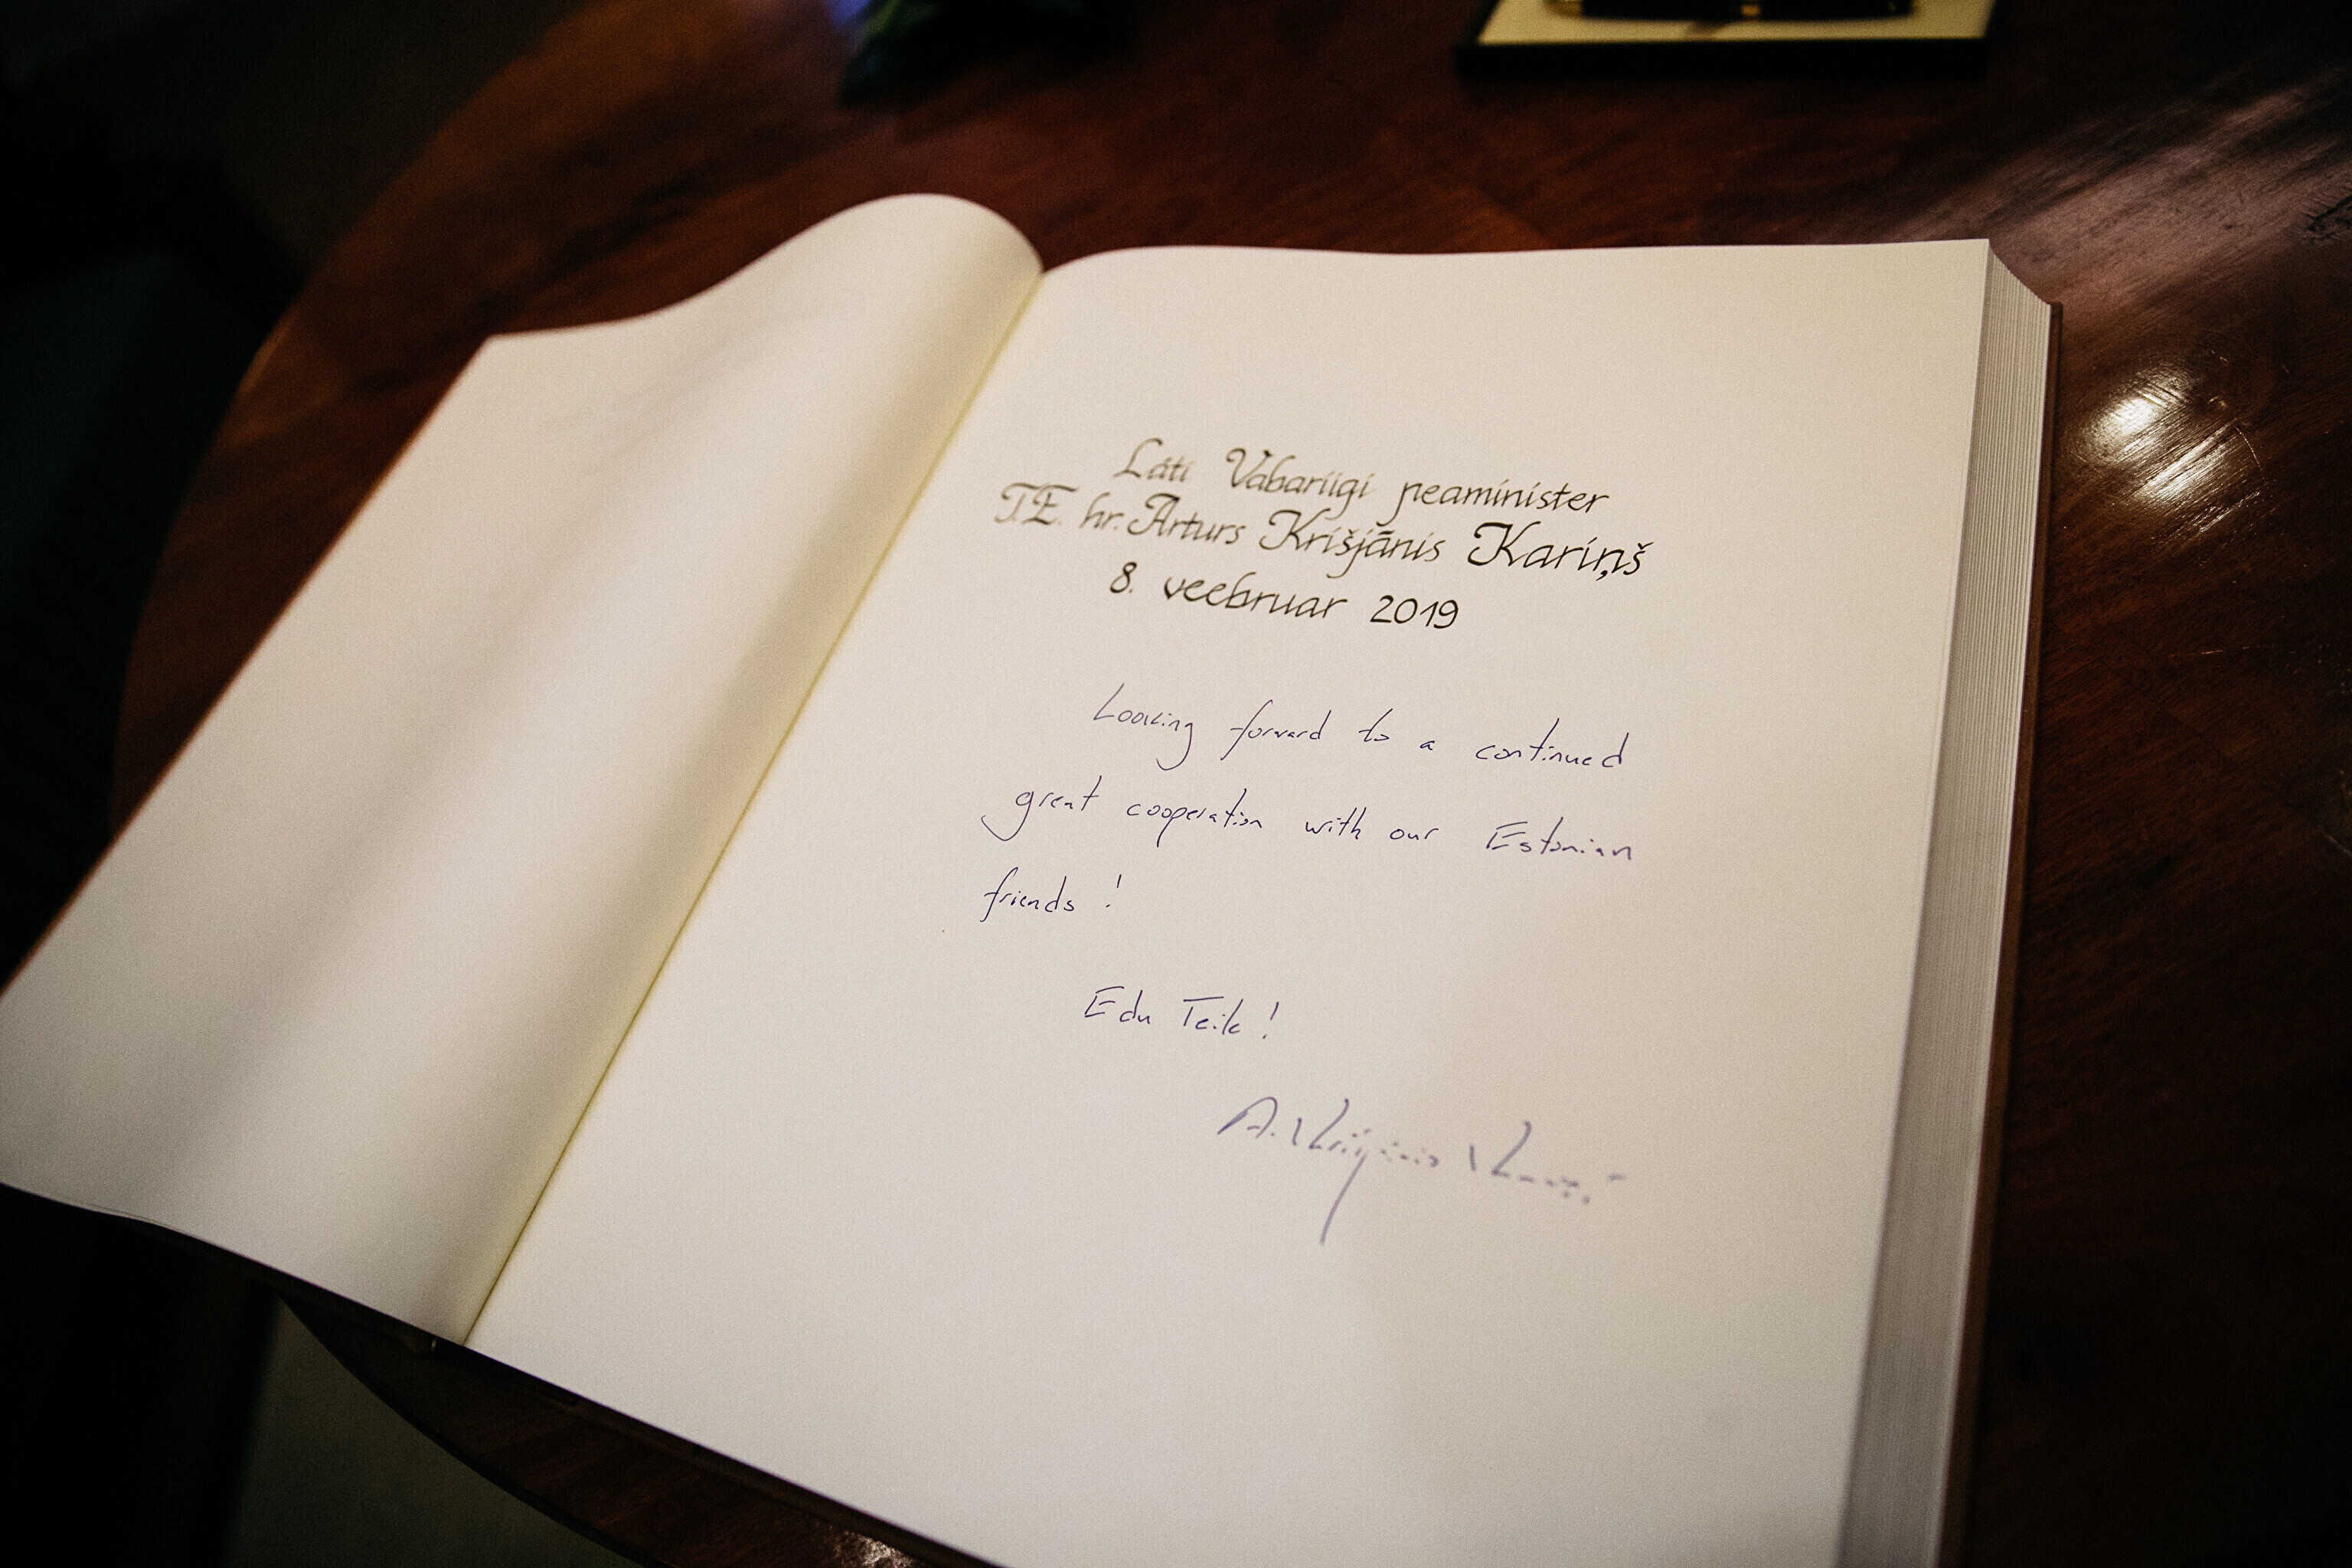 Läti Vabariigi peaminister
T.E. hr. Arturs Krišjānis Kariņš
8. veebruar 2019
Looking forward to a continued
great cooperation with our Estonian
friends !
Edu Teile !
A. Krišjānis Kariņš